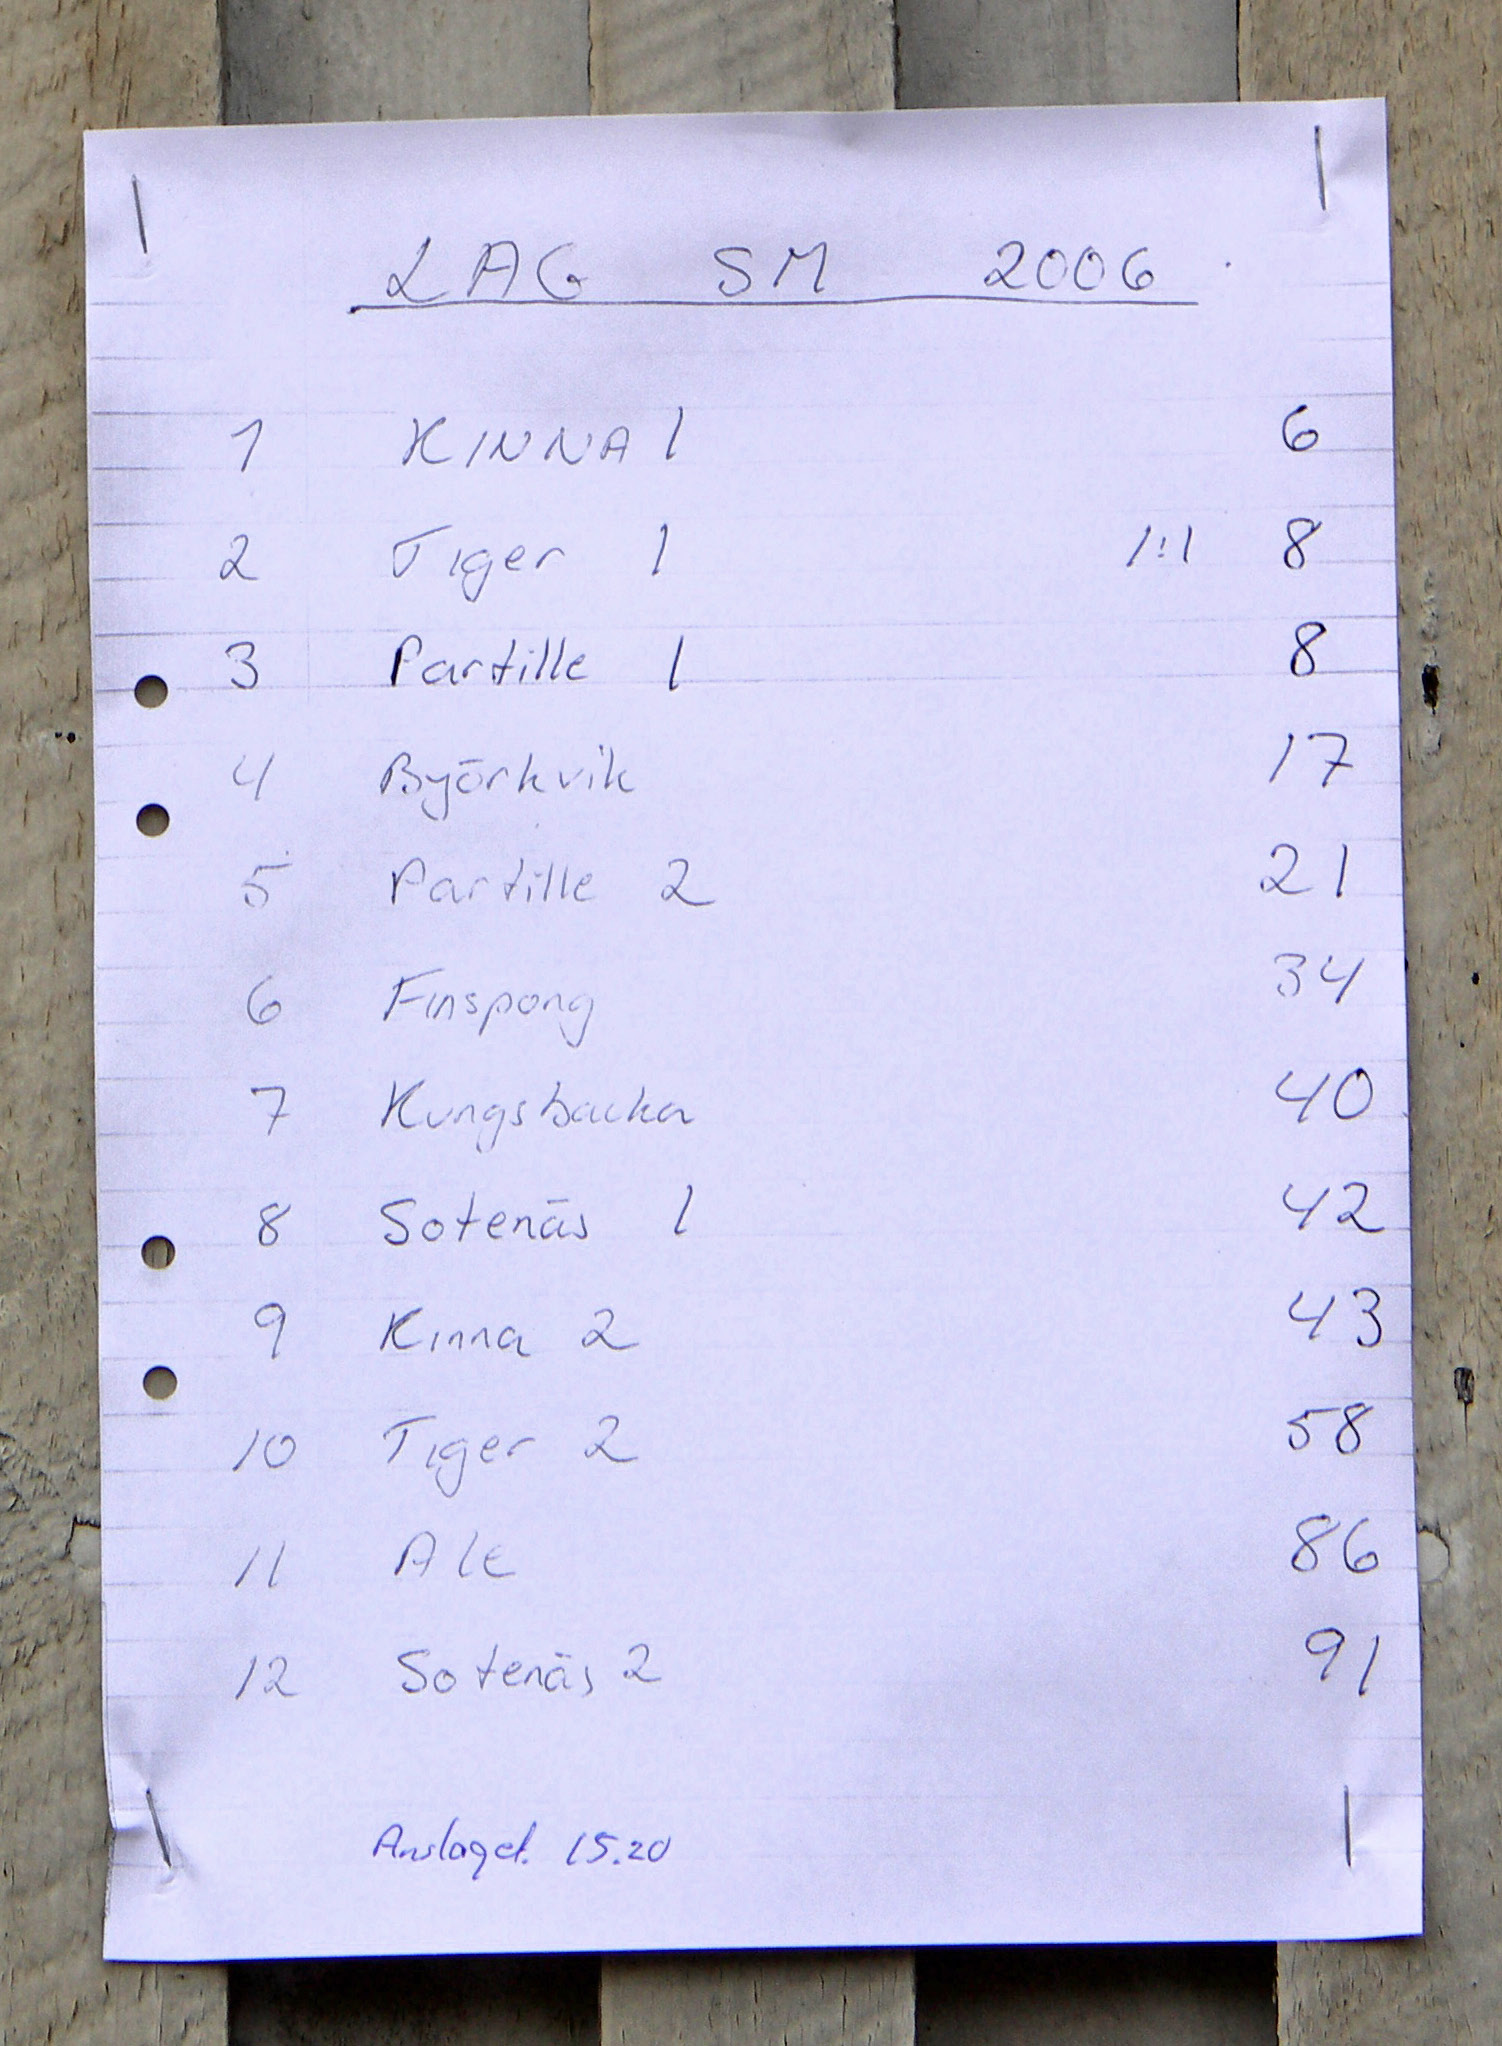 LAG SM 2006
1 KINNA 1 6
2 Tiger 1 1:1 8
3 Partille 1 8
4 Byörkvik 17
5 Partille 2 21
6 Finspong 34
7 Kungsbacka 40
8 Sotenäs 1 42
9 Kinna 2 43
10 Tiger 2 58
11 Ale 86
12 Sotenäs 2 91
Anslaget. 15.20